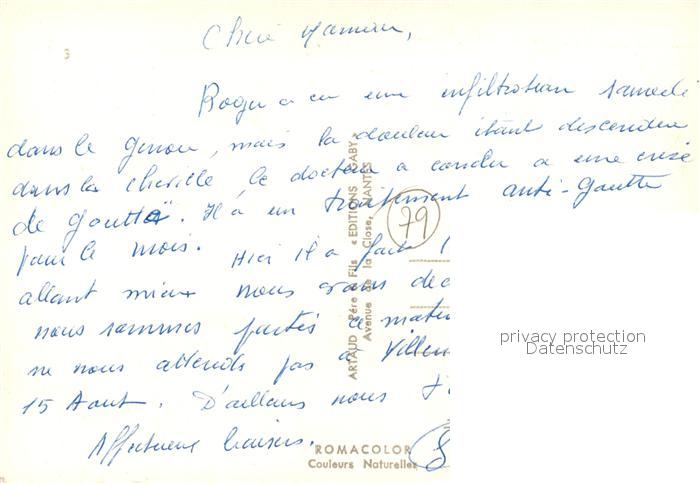 Chère Maman,
Roger a eu une infiltration samedi
dans le genou, mais la douleur étant descendue
dans la cheville, le docteur a conclu a une crise
de goutte. Il a un traitement anti-Goutte
pour le mois. Hier il a fait
allant mieux nous avons déc
nous sommes partis ce mate
ne nous attends pas à Villen
15 Aout. D'ailleurs nous
Affectueux baisers.
79
ARTAUD Père et Fils « EDITIONS GABY »
Avenue de la Close, NANTES
ROMACOLOR
Couleurs Naturelles
privacy protection
Datenschutz